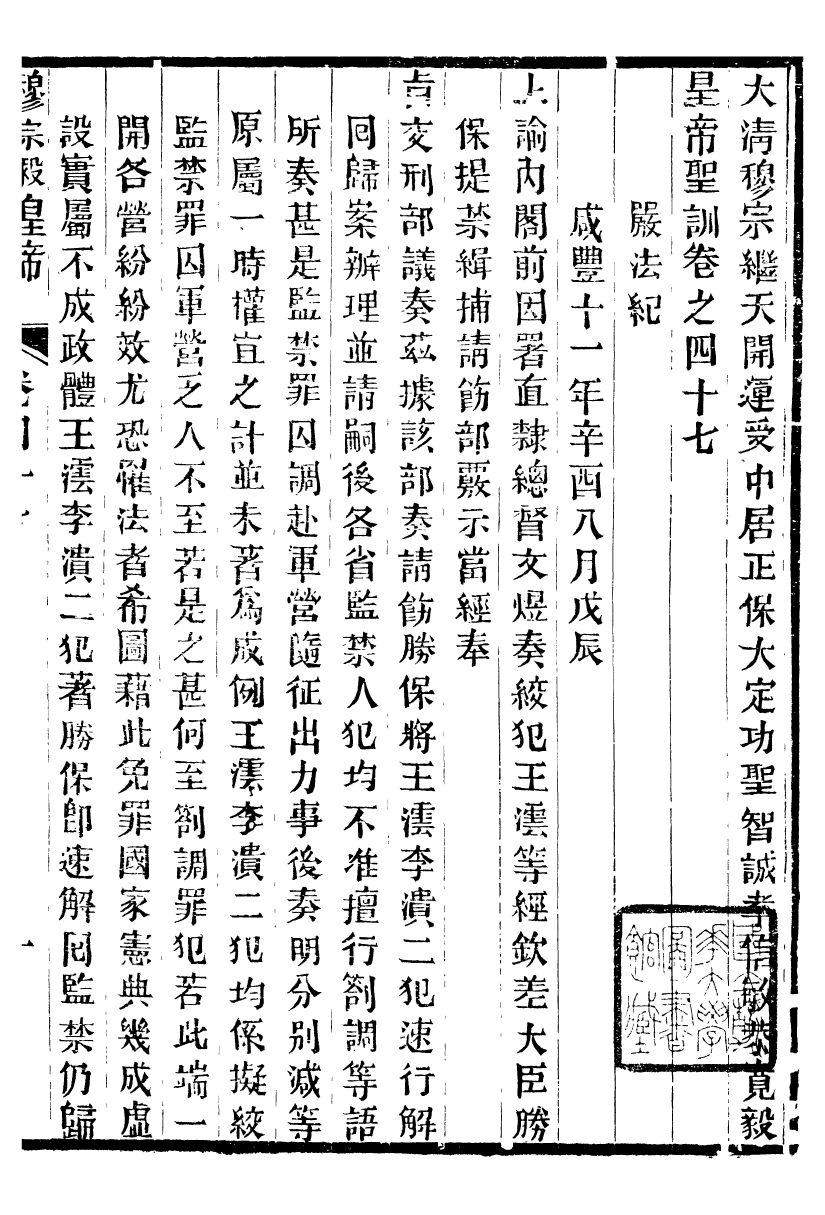 大淸穆宗繼天開運受中居正保大定功聖智誠孝信敏恭寬毅
皇帝聖訓卷之四十七
嚴法紀
咸豐十一年辛酉八月戊辰
上諭內閣前因署直隸總督文煜奏絞犯王澐等經欽差大臣勝
保提禁緝捕請飭部覈示當經奉
旨交刑部議奏茲據該部奏請飭勝保將王澐李瀆二犯速行解
囘歸案辦理並請嗣後各省監禁人犯均不准擅行劄調等語
所奏甚是監禁罪囚調赴軍營隨征出力事後奏明分別減等
原屬一時權宜之計並未著爲成例王澐李瀆二犯均係擬絞
監禁罪囚軍營乏人不至若是之甚何至劄調罪犯若此端一
開各營紛紛效尤恐懼法者希圖藉此免罪國家憲典幾成虛
設實屬不成政體王澐李瀆二犯著勝保卽速解囘監禁仍歸
穆宗毅皇帝
卷四十七
一